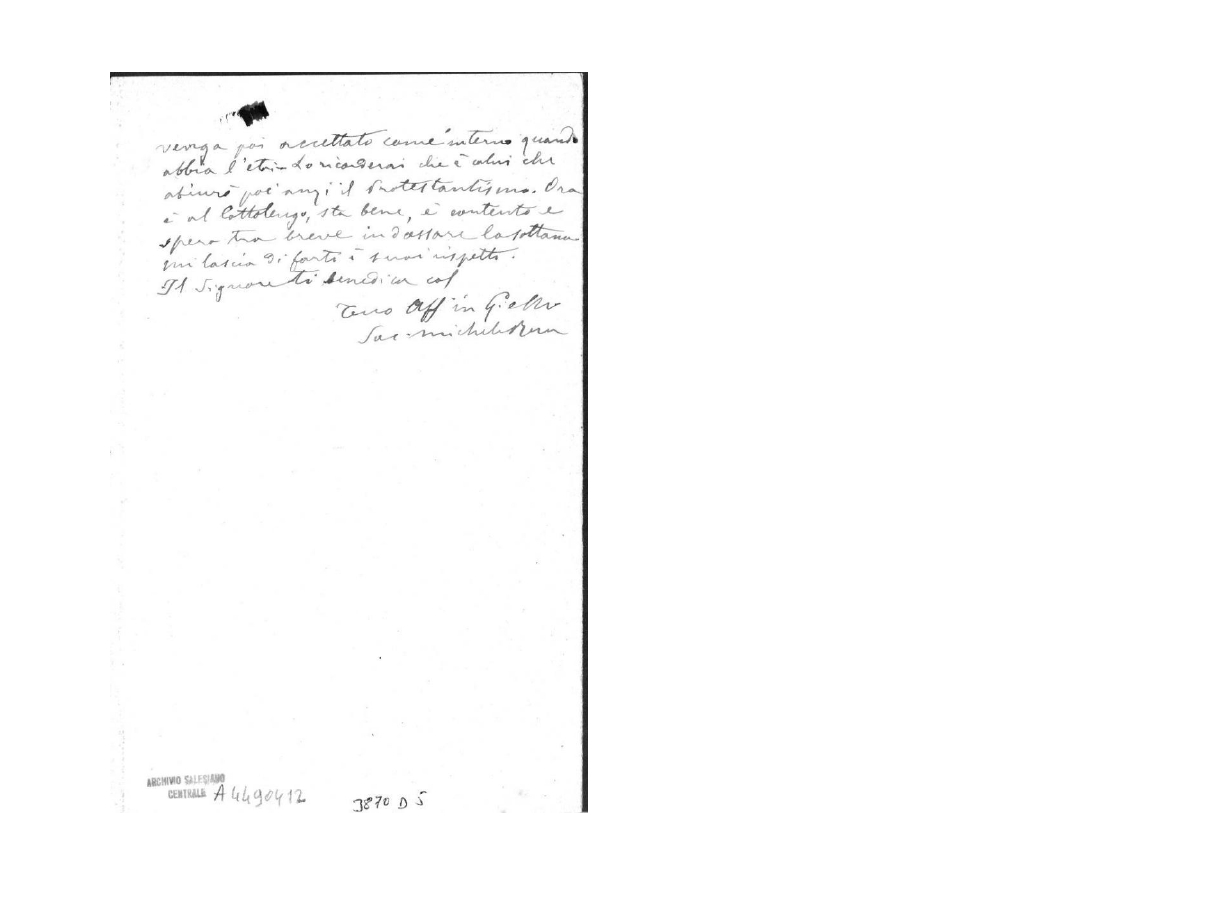 venga poi accettato come interno quando
abbia l'età. Lo ricorderai che è colui che
abiurò poc'anzi il Protestantismo. Ora
è al Cottolengo, sta bene, è contento e
spera tra breve indossare la sottana
mi lascia di farti i suoi rispetti.
Il Signore ti benedica col
Tuo Aff in G. e M.
Sac. Michele Rua
ARCHIVIO SALESIANO
CENTRALE A4490412
3870 D 5